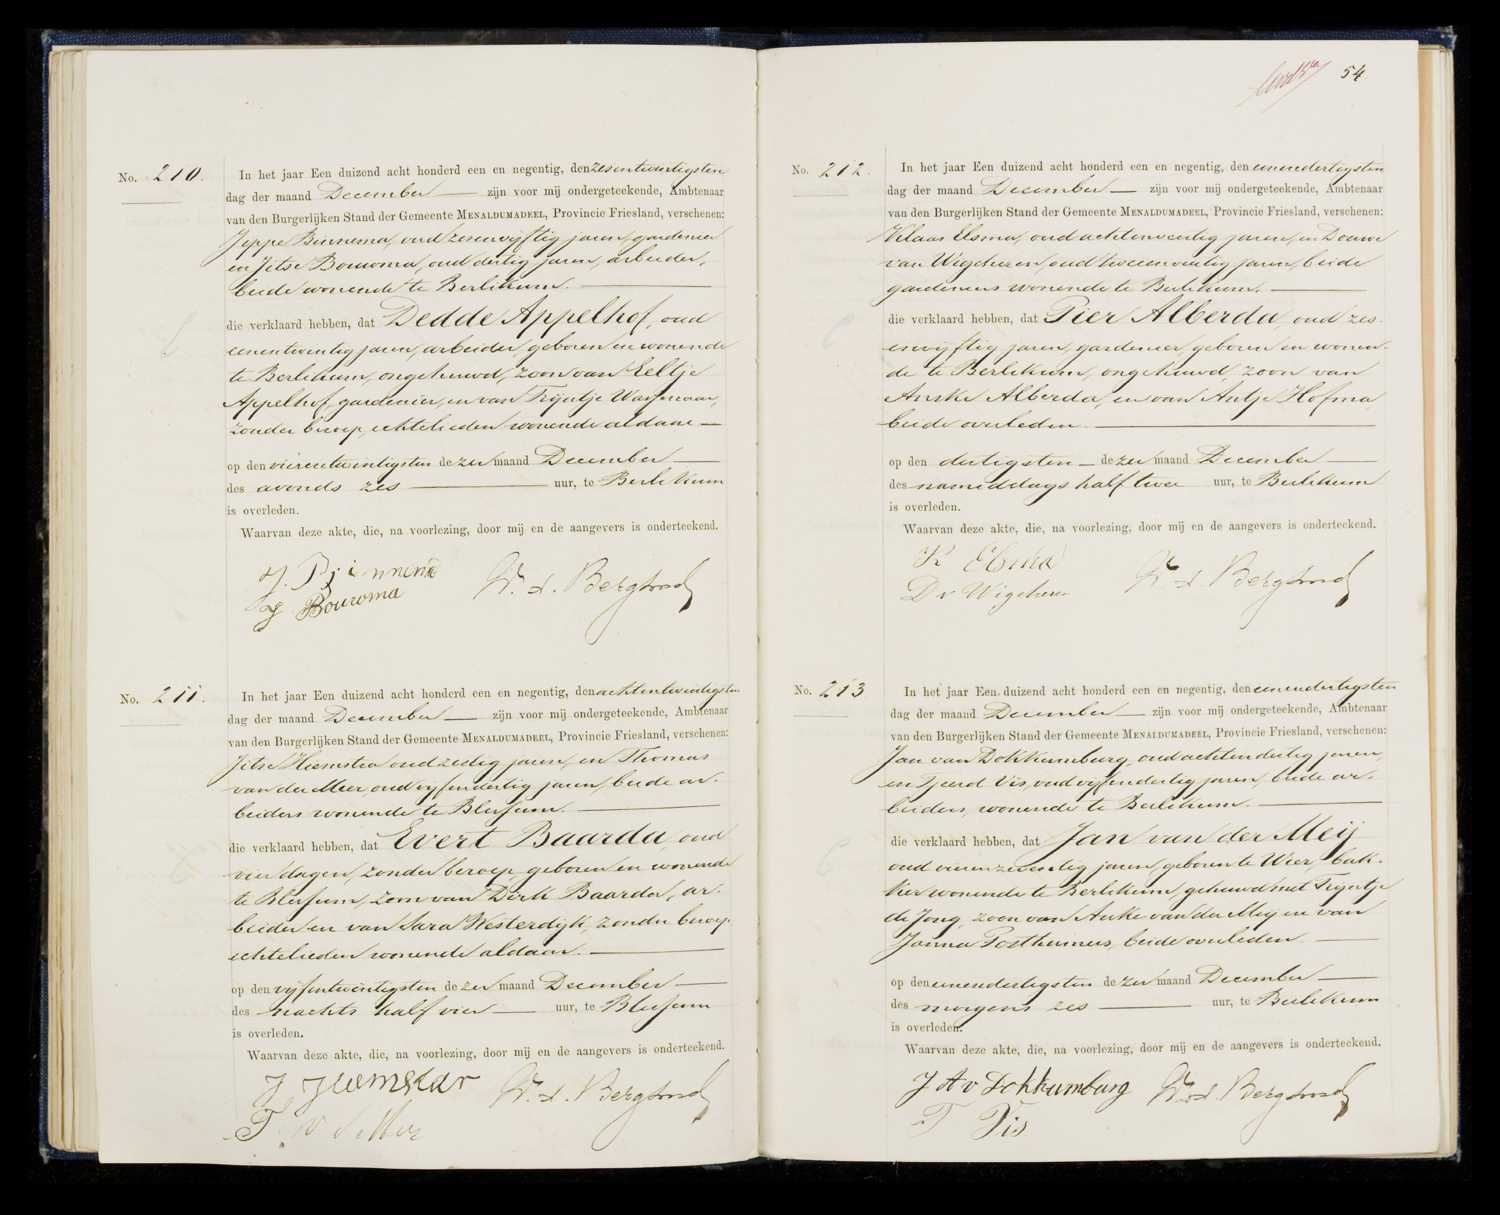 No. 210.
In het jaar Een duizend acht honderd een en negentig, den zesentwintigsten
dag der maand December zijn voor mij ondergeteekende, Ambtenaar
van den Burgerlijken Stand der Gemeente MENALDUMADEEL, Provincie Friesland, verschenen:
Jeppe Binnema, oud zesenvijftig jaren, gardenier
en Jitse Bouwma, oud dertig jaren, arbeider,
beide wonende te Berlikum.
die verklaard hebben, dat Dedde Appelhof, oud
eenentwintig jaren, arbeider, geboren en wonende
te Berlikum, ongehuwd, zoon van Eeltje
Appelhof, gardenier, en van Trijntje Wagenaar,
zonder beroep, echtelieden wonende aldaar
op den vierentwintigsten dezer maand December
des avonds zes uur, te Berlikum
is overleden.
Waarvan deze akte, die, na voorlezing, door mij en de aangevers is onderteekend.
J. Binnema
J Bouwma
No. 211.
In het jaar Een duizend acht honderd een en negentig, den achtentwintigsten
dag der maand December zijn voor mij ondergeteekende, Ambtenaar
van den Burgerlijken Stand der Gemeente MENALDUMADEEL, Provincie Friesland, verschenen:
Jitse Heemstra oud zestig jaren, en Thomas
van der Meer, oud vijfendertig jaren, beide ar-
beiders wonende te Blessum.
die verklaard hebben, dat Evert Baarda, oud
vier dagen, zonder beroep, geboren en wonende
te Blessum, zoon van Dirk Baarda, ar-
beider en van Sara Westerdijk, zonder beroep
echtelieden wonende aldaar.
op den vijfentwintigsten dezer maand December
des nachts half vier uur, te Blessum
is overleden.
Waarvan deze akte, die, na voorlezing, door mij en de aangevers is onderteekend.
T v d Meer
54
No. 212.
In het jaar Een duizend acht honderd een en negentig, den eenendertigsten
dag der maand December zijn voor mij ondergeteekende, Ambtenaar
van den Burgerlijken Stand der Gemeente MENALDUMADEEL, Provincie Friesland, verschenen:
Klaas Elsma, oud achtenveertig jaren, en Douwe
van Wigcheren, oud tweeenveertig jaren, beide
gardeniers wonende te Berlikum.
die verklaard hebben, dat Pier Alberda, oud zes-
envijftig jaren, gardenier, geboren en wonen-
de te Berlikum, ongehuwd, zoon van
Anske Alberda, en van Antje Hofma,
beide overleden.
op den dertigsten dezer maand December
des namiddags half twee uur, te Berlikum
is overleden.
Waarvan deze akte, die, na voorlezing, door mij en de aangevers is onderteekend.
K Elsma
D v Wigcheren
No. 213
In het jaar Een duizend acht honderd een en negentig, den eenendertigsten
dag der maand December zijn voor mij ondergeteekende, Ambtenaar
van den Burgerlijken Stand der Gemeente MENALDUMADEEL, Provincie Friesland, verschenen:
Jan van Dokkumburg, oud achtendertig jaren,
en Tjeerd Vis, oud vijfendertig jaren, beide ar-
beiders, wonende te Berlikum.
die verklaard hebben, dat Jan van der Meij
oud vierenzeventig jaren, geboren te Wier, bak-
ker wonende te Berlikum, gehuwd met Trijntje
de Jong, zoon van Auke van der Meij en van
Janna Posthumus, beide overleden.
op den eenendertigsten dezer maand December
des morgens zes uur, te Berlikum
is overleden.
Waarvan deze akte, die, na voorlezing, door mij en de aangevers is onderteekend.
J A v Dokkumburg
T Vis